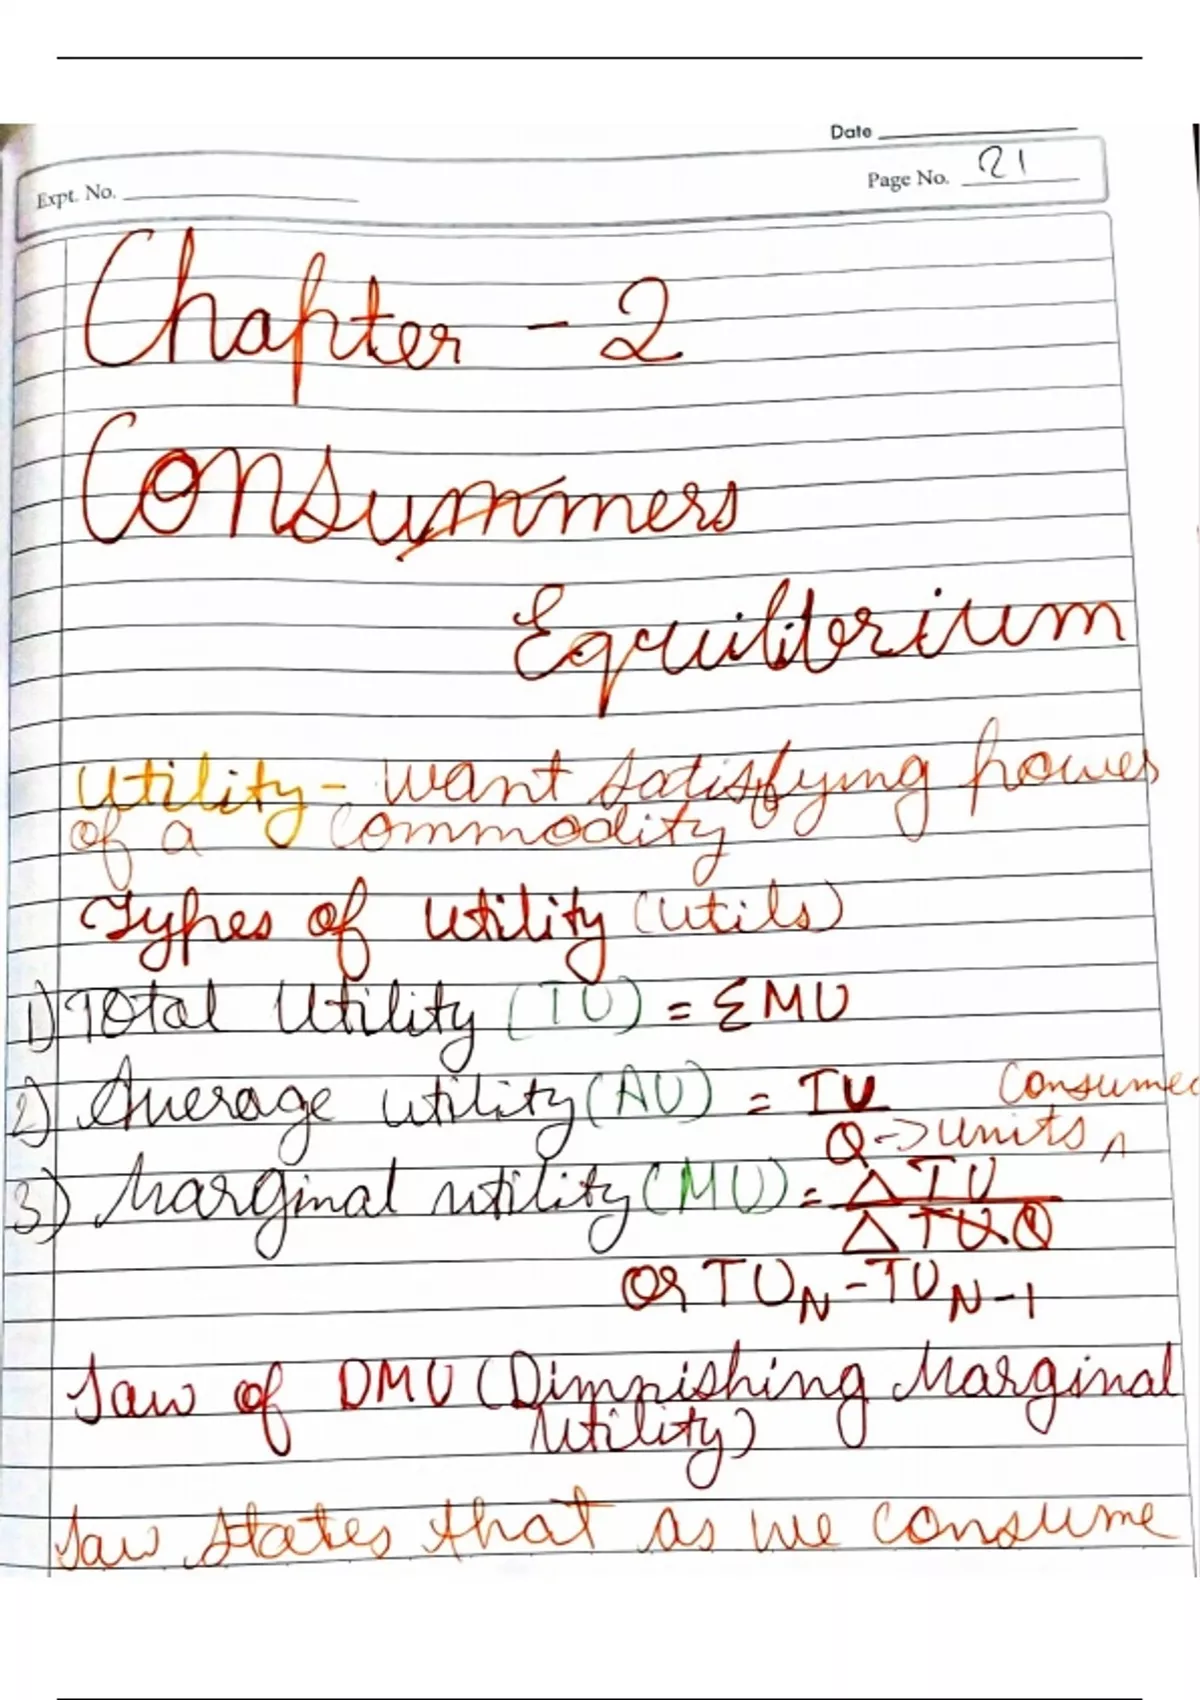 Date
Expt. No.
Page No. 21
Chapter - 2
Consummers
Equilibrium
Utility - Want satisfying power
of a Commodity
Types of Utility (utils)
1) Total Utility (TU) = ΣMU
2) Average utility (AU) = TU Consumed
Q -> units ^
3) Marginal utility (MU) = ΔTU
ΔTUQ
or TUN - TUN-1
Law of DMU (Dimnishing Marginal
Utility)
Law states that as we consume